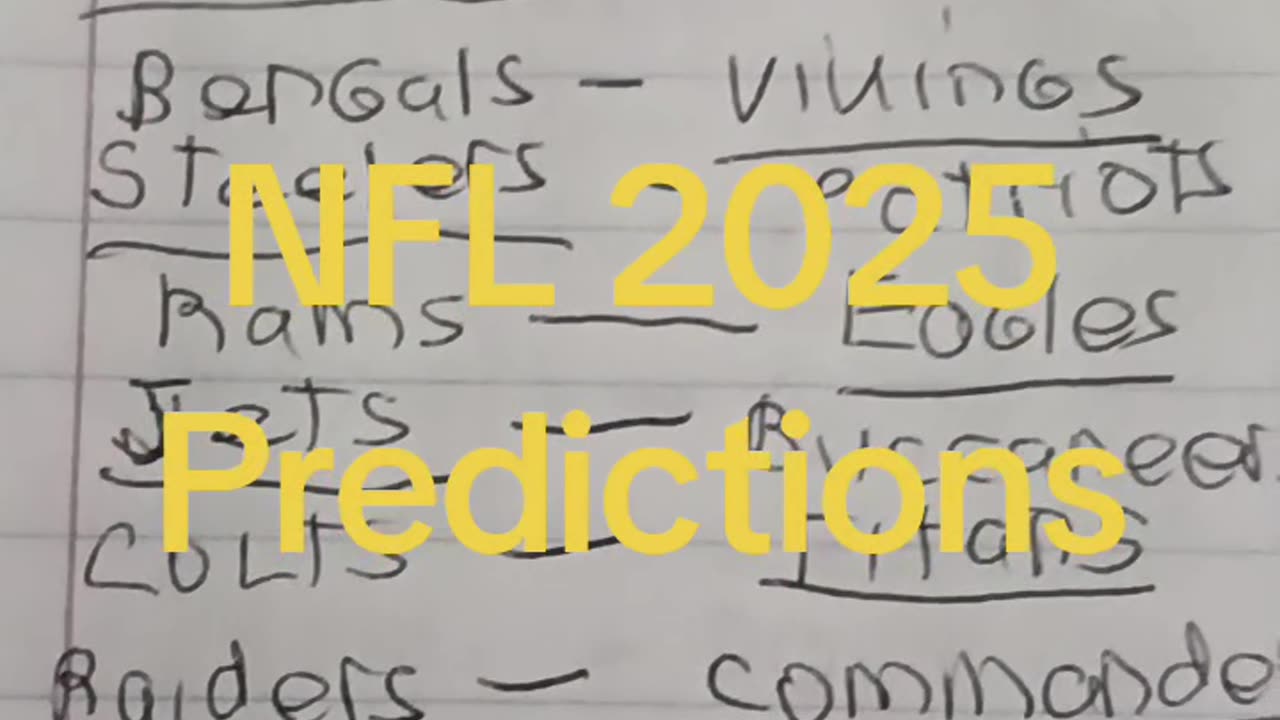 Bengals - Vikings
Steelers - Patriots
NFL 2025
Rams - Eagles
Jets - Buccaneer
Predictions
Colts - Titans
Raiders - Commande